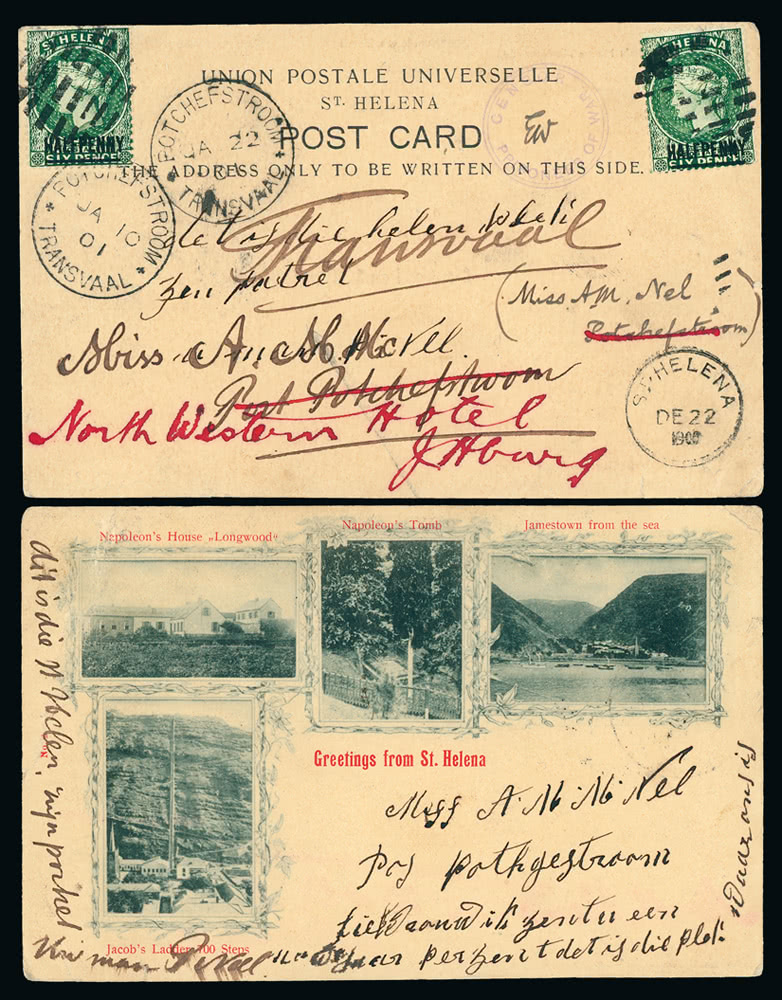 ST HELENA
HALFPENNY
SIX PENCE
ST HELENA
HALFPENNY
SIX PENCE
UNION POSTALE UNIVERSELLE
ST. HELENA
POST CARD
THE ADDRESS ONLY TO BE WRITTEN ON THIS SIDE.
POTCHEFSTROOM
JA 22
01
TRANSVAAL
POTCHEFSTROOM
JA 10
01
TRANSVAAL
CENSOR
PRISONERS OF WAR
EW
det is die helen
Transvaal
zen
(Miss A.M. Nel
Potchefstroom)
Miss Nel
Post Potchefstroom
North Western Hotel
JHburg
ST HELENA
DE 22
1900
Napoleon's House „Longwood"
Napoleon's Tomb
Jamestown from the sea
Greetings from St. Helena
Jacob's Ladder 700 Steps
dit is die St Helen
Miss A. M. M. Nel
Pos pothgestroom
ik zent u een
det is die plek
waar ons is